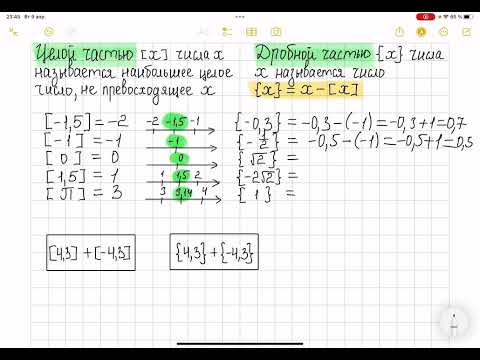 23:45 Вт 9 апр.
65 %
Целой частью [x] числа x
называется наибольшее целое
число, не превосходящее x
Дробной частью {x} числа
x называется число
{x} = x - [x]
[-1,5] = -2
-2 -1,5 -1
[-1] = -1
-1
[0] = 0
0
[1,5] = 1
1 1,5 2
[π] = 3
3 3,14 4
{-0,3} = -0,3-(-1) = -0,3+1=0,7
{-1/2} = -0,5-(-1)=-0,5+1=0,5
{√2} =
{-2√2} =
{1} =
[4,3] + [-4,3]
{4,3} + {-4,3}